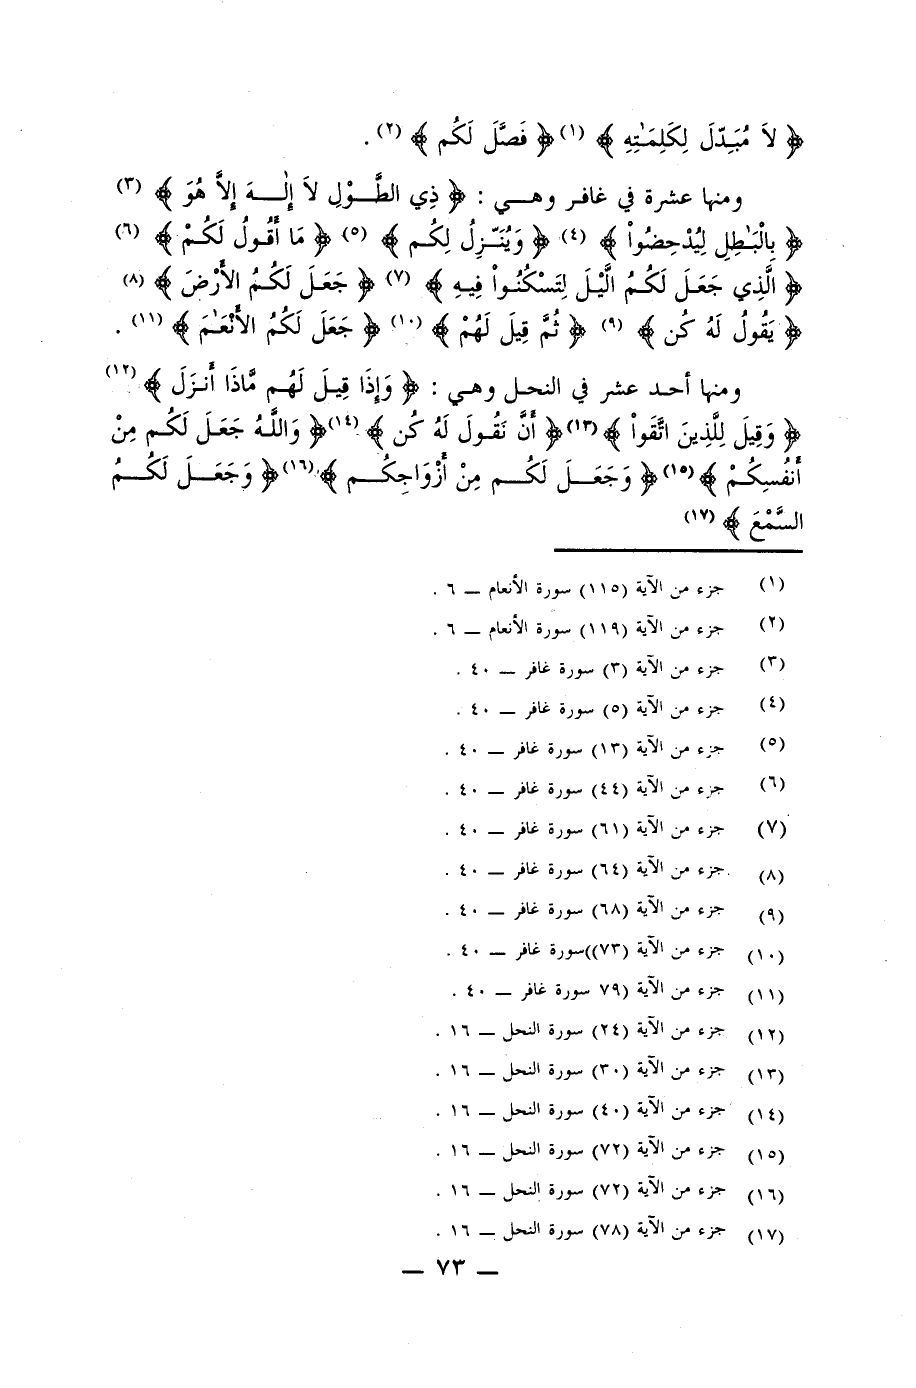 ﴿ لاَ مُبَدِّلَ لِكَلِمَـٰتِهِ ﴾ (١) ﴿ فَصَّلَ لَكُم ﴾ (٢) .
ومنها عشرة في غافر وهـي : ﴿ ذِي الطَّـوْلِ لاَ إِلَـٰـهَ إِلاَّ هُوَ ﴾ (٣)
﴿ بِالْبَـٰطِلِ لِيُدْحِضُواْ ﴾ (٤) ﴿ وَيُنَـزِّلُ لَكُم ﴾ (٥) ﴿ مَا أَقُولُ لَكُمْ ﴾ (٦)
﴿ الَّذِي جَعَلَ لَكُمُ الَّيْلَ لِتَسْكُنُواْ فِيهِ ﴾ (٧) ﴿ جَعَـلَ لَكُمُ الأَرْضَ ﴾ (٨)
﴿ يَقُولُ لَهُ كُن ﴾ (٩) ﴿ ثُمَّ قِيلَ لَهُمْ ﴾ (١٠) ﴿ جَعَلَ لَكُمُ الأَنْعَـٰمَ ﴾ (١١) .
ومنها أحـد عشر في النحـل وهـي : ﴿ وَإِذَا قِيـلَ لَهُـم مَّاذَا أَنـزَلَ ﴾ (١٢)
﴿ وَقِيلَ لِلَّذِينَ اتَّقَواْ ﴾ (١٣) ﴿ أَنَّ نَقُـولَ لَهُ كُن ﴾ (١٤) ﴿ وَاللَّـهُ جَعَـلَ لَكُم مِنْ
أَنفُسِكُـمْ ﴾ (١٥) ﴿ وَجَعَـلَ لَكُـم مِنْ أَزْوَاجِكُـم ﴾ (١٦) ﴿ وَجَعَـلَ لَكُـمُ
السَّمْعَ ﴾ (١٧)
(١) جزء من الآية (١١٥) سورة الأنعام ــ ٦ .
(٢) جزء من الآية (١١٩) سورة الأنعام ــ ٦ .
(٣) جزء من الآية (٣) سورة غافر ــ ٤٠ .
(٤) جزء من الآية (٥) سورة غافر ــ ٤٠ .
(٥) جزء من الآية (١٣) سورة غافر ــ ٤٠ .
(٦) جزء من الآية (٤٤) سورة غافر ــ ٤٠ .
(٧) جزء من الآية (٦١) سورة غافر ــ ٤٠ .
(٨) جزء من الآية (٦٤) سورة غافر ــ ٤٠ .
(٩) جزء من الآية (٦٨) سورة غافر ــ ٤٠ .
(١٠) جزء من الآية (٧٣))سورة غافر ــ ٤٠ .
(١١) جزء من الآية (٧٩ سورة غافر ــ ٤٠ .
(١٢) جزء من الآية (٢٤) سورة النحل ــ ١٦ .
(١٣) جزء من الآية (٣٠) سورة النحل ــ ١٦ .
(١٤) جزء من الآية (٤٠) سورة النحل ــ ١٦ .
(١٥) جزء من الآية (٧٢) سورة النحل ــ ١٦ .
(١٦) جزء من الآية (٧٢) سورة النحل ــ ١٦ .
(١٧) جزء من الآية (٧٨) سورة النحل ــ ١٦ .
ــ ٧٣ ــ